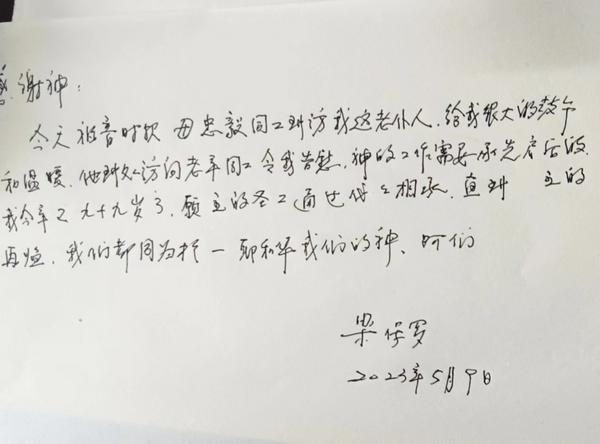 感谢神：
今天福音时报 毋忠毅同工到访我这老仆人，给我很大的鼓舞
和温暖，他到处访问老年同工令我省愁，神的工作需要承先启后的，
我今年已九十九岁了，愿主的圣工通过代代相承，直到 主的
再临，我们都同为
我们的神、阿们
梁保罗
2023年5月9日